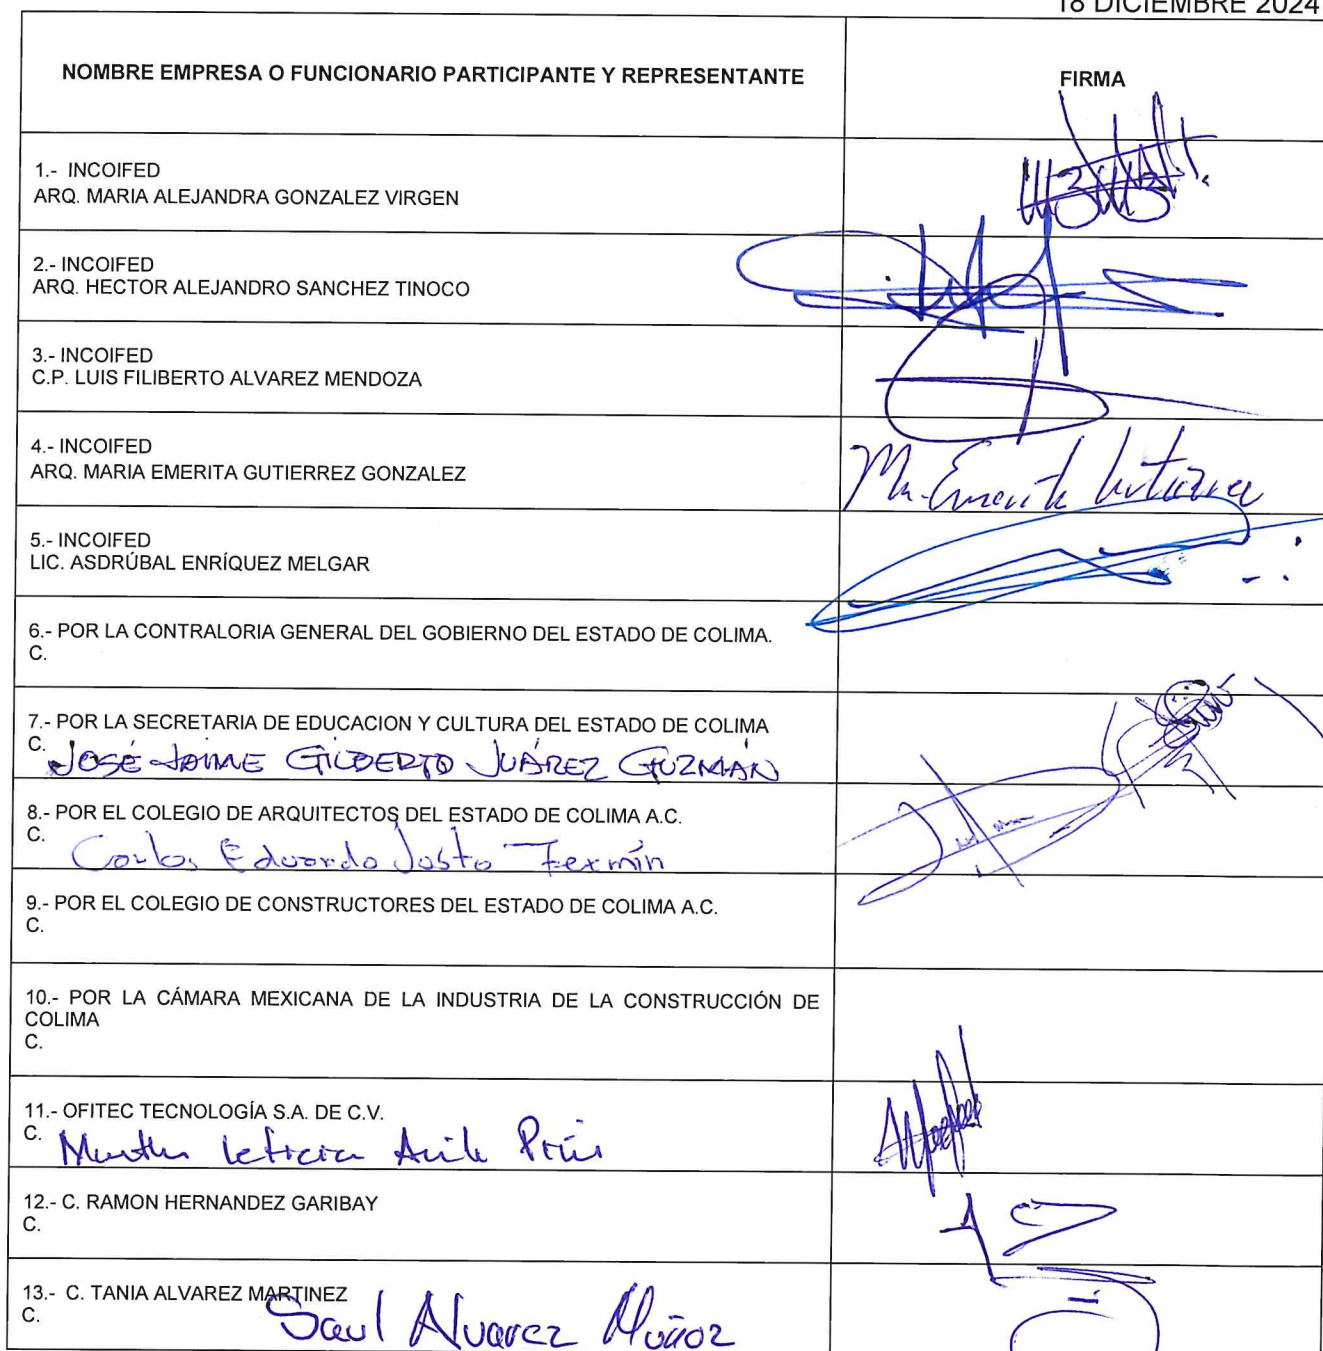 18 DICIEMBRE 2024
NOMBRE EMPRESA O FUNCIONARIO PARTICIPANTE Y REPRESENTANTE
FIRMA
1.- INCOIFED
ARQ. MARIA ALEJANDRA GONZALEZ VIRGEN
2.- INCOIFED
ARQ. HECTOR ALEJANDRO SANCHEZ TINOCO
3.- INCOIFED
C.P. LUIS FILIBERTO ALVAREZ MENDOZA
4.- INCOIFED
ARQ. MARIA EMERITA GUTIERREZ GONZALEZ
Ma. Emerita Gutierrez
5.- INCOIFED
LIC. ASDRÚBAL ENRÍQUEZ MELGAR
6.- POR LA CONTRALORIA GENERAL DEL GOBIERNO DEL ESTADO DE COLIMA.
C.
7.- POR LA SECRETARIA DE EDUCACION Y CULTURA DEL ESTADO DE COLIMA
C. JOSÉ JAIME GILBERTO JUÁREZ GUZMÁN
8.- POR EL COLEGIO DE ARQUITECTOS DEL ESTADO DE COLIMA A.C.
C. Carlos Eduardo Justo Fermín
9.- POR EL COLEGIO DE CONSTRUCTORES DEL ESTADO DE COLIMA A.C.
C.
10.- POR LA CÁMARA MEXICANA DE LA INDUSTRIA DE LA CONSTRUCCIÓN DE
COLIMA
C.
11.- OFITEC TECNOLOGÍA S.A. DE C.V.
C. Martha Leticia
12.- C. RAMON HERNANDEZ GARIBAY
C.
13.- C. TANIA ALVAREZ MARTINEZ
C. Saul Alvarez Muñoz